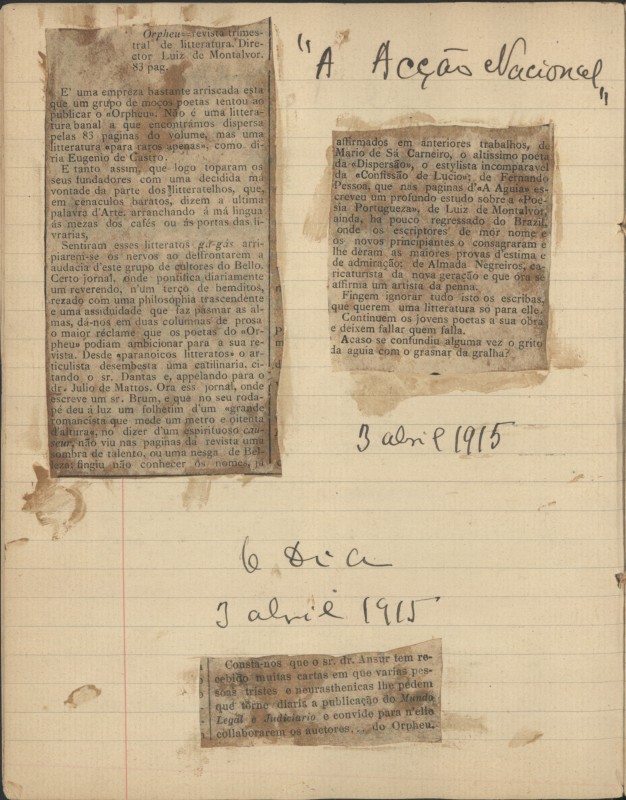 Orpheu—revista trimes-
tral de litteratura. Dire-
ctor Luiz de Montalvor.
83 pag.
E' uma empreza bastante arriscada esta
que um grupo de moços poetas tentou ao
publicar o «Orpheu». Não é uma littera-
tura banal a que encontrámos dispersa
pelas 83 paginas do volume, mas uma
litteratura «para raros apenas», como di-
ria Eugenio de Castro.
E tanto assim, que logo toparam os
seus fundadores com uma decidida má
vontade da parte dos litteratelhos, que,
em cenaculos baratos, dizem a ultima
palavra d'Arte, arranchando á má lingua
ás mezas dos cafés ou ás portas das li-
vrarias,
Sentiram esses litteratos gá-gás arri-
piarem-se os nervos ao deffrontarem a
audacia d'este grupo de cultores do Bello.
Certo jornal, onde pontifica diariamente
um reverendo, n'um terço de bemditos,
rezado com uma philosophia trascendente
e uma assiduidade que faz pasmar as al-
mas, dá-nos em duas columnas de prosa
o maior réclame que os poetas do «Or-
pheu» podiam ambicionar para a sua re-
vista. Desde «paranoicos litteratos» o ar-
ticulista desembesta uma catilinaria, ci-
tando o sr. Dantas e, appelando para o
dr. Julio de Mattos. Ora esse jornal, onde
escreve um sr. Brum, e que no seu roda-
pé deu á luz um folhetim d'um «grande
romancista que mede um metro e oitenta
d'altura», no dizer d'um espirituoso cau-
seur, não viu nas paginas da revista uma
sombra de talento, ou uma nesga de Bel-
leza: fingiu não conhecer os nomes, já
"A Acção Nacional"
affirmados em anteriores trabalhos, de
Mario de Sá Carneiro, o altissimo poeta
da «Dispersão», o estylista incomparavel
da «Confissão de Lucio»; de Fernando
Pessoa, que nas paginas d'«A Aguia» es-
creveu um profundo estudo sobre a «Poe-
sia Portugueza», de Luiz de Montalvor,
ainda, ha pouco regressado do Brazil,
onde os escriptores de mór nome e
os novos principiantes o consagraram e
lhe deram as maiores provas d'estima e
de admiração; de Almada Negreiros, ca-
ricaturista da nova geração e que óra se
affirma um artista da penna.
Fingem ignorar tudo isto os escribas,
que querem uma litteratura so para elle.
Continuem os jovens poetas a sua obra
e deixem fallar quem falla.
Acaso se confundiu alguma vez o grito
da aguia com o grasnar da gralha?
3 abril 1915
O Dia
3 abril 1915
Consta-nos que o sr. dr. Ansur tem re-
cebido muitas cartas em que varias pes-
soas tristes e neurasthenicas lhe pedem
que torne diaria a publicação do Mundo
Legal e Judiciario e convide para n'elle
collaborarem os auctores... do Orpheu.